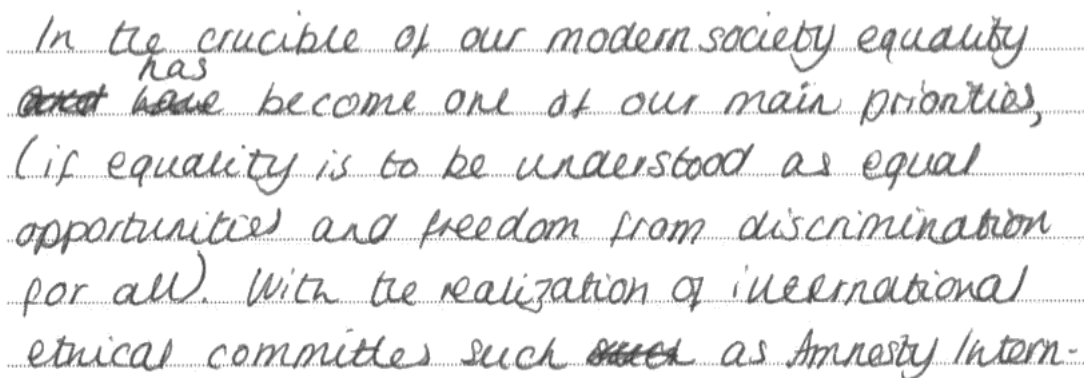 In the crucible of our modern society equality
has
become one of our main priorities,
(if equality is to be understood as equal
opportunities and freedom from discrimination
for all). With the realization of international
ethical committes such as Amnesty Intern-